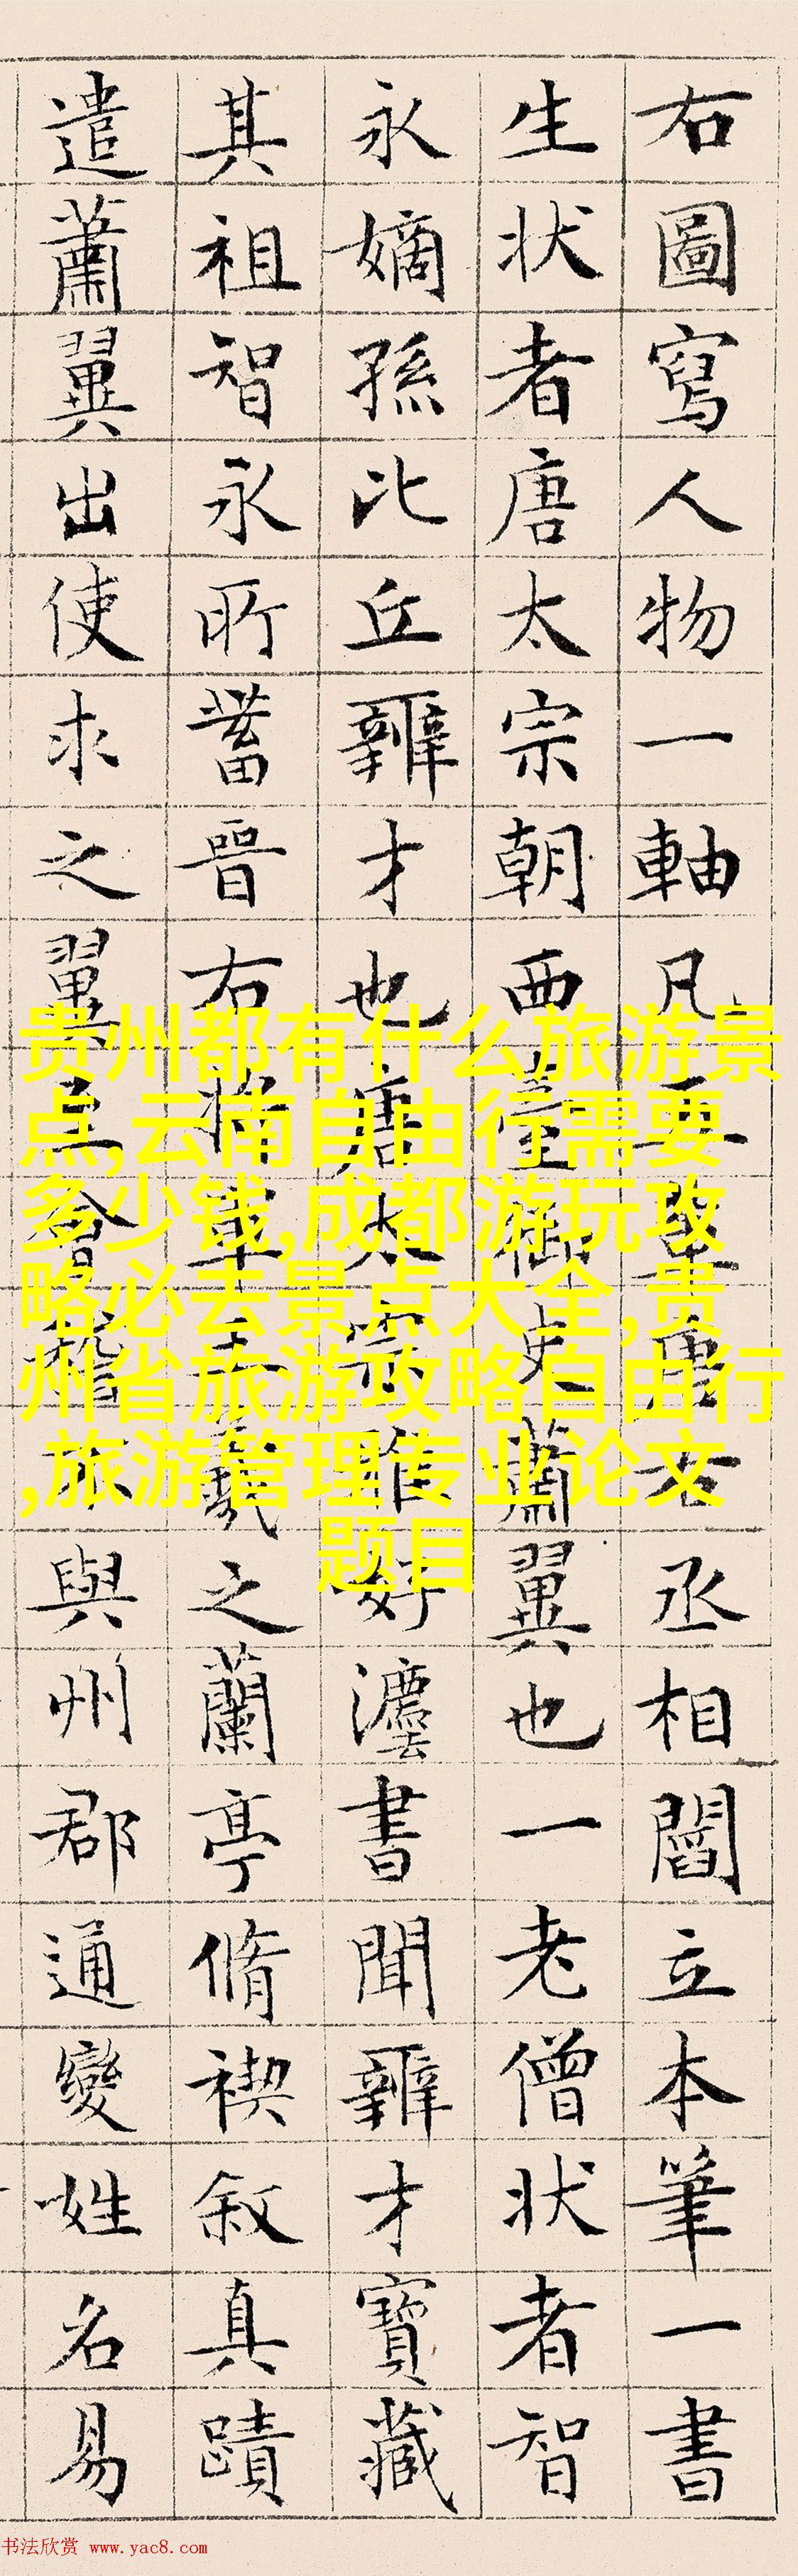 右圖寫人物一軸凡五輩唐右丞相閻立本筆一書
生状者唐太宗朝西臺御史蕭翼也一老僧状者智
永嫡孫比丘辯才也唐太宗雅好灋書聞辯才寶藏
其祖智永所蓄晉右將軍王羲之蘭亭脩禊叙真蹟
遣蕭翼出使求之翼至會稽不與州郡通變姓名易
贵州都有什么旅游景
点,云南自由行需要
多少钱,成都游玩攻
略必去景点大全,贵
州省旅游攻略自由行
,旅游管理专业论文
题目
书法欣赏 www.yac8.com